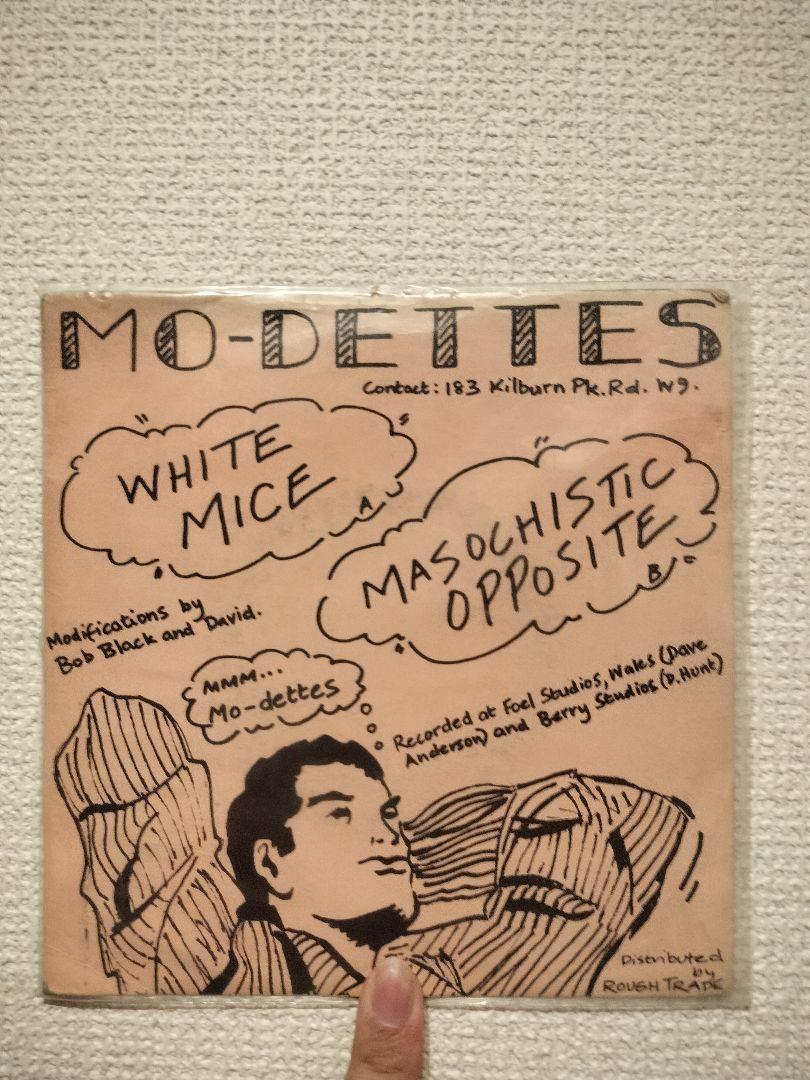 MO-DETTES
Contact: 183 Kilburn Pk. Rd. W9.
"WHITE
MICE"
A
"MASOCHISTIC
OPPOSITE"
B
Modifications by
Bob Black and David.
MMM...
Mo-dettes
Recorded at Foel Studios, Wales (Dave
Anderson) and Berry Studios (D. Hunt)
Distributed
by
ROUGH TRADE